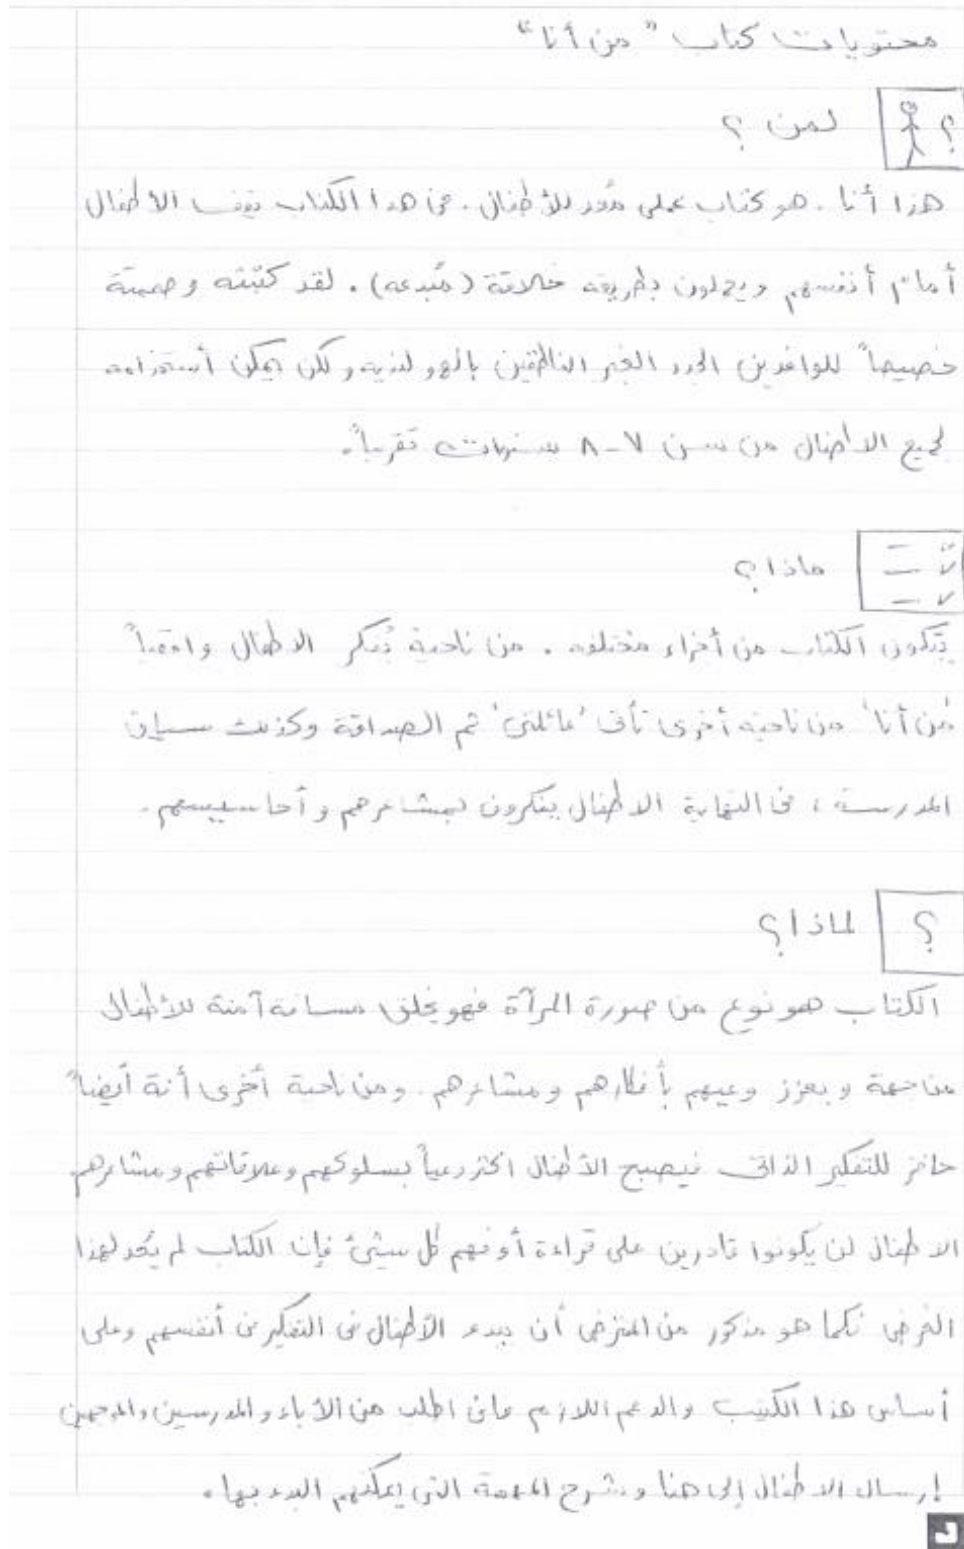 محتويات كتاب "من أنا"
؟ لمن ؟
هذا أنا. هو كتاب عملي مُعد للأطفال. في هذا الكتاب يقف الأطفال
أمام أنفسهم ويعملون بطريقة خلاقة (مُبدعه). لقد كتبته وصممتة
خصيصاً للوافدين الجدد الغير الناطقين بالهولنديه ولكن يمكن أستخدامه
لجميع الاطفال من سن ٧-٨ سنوات تقريباً.
ماذا؟
يتكون الكتاب من أجزاء مختلفه. من ناحية يُفكر الاطفال واقعياً
'من أنا' من ناحيه أخرى تأتى 'عائلتي' ثم الصداقة وكذلك سياق
المدرسة، فى النهاية الاطفال يفكرون بمشاعرهم وأحاسيسهم.
؟ لماذا؟
الكتاب هو نوع من صورة المرآة فهو يخلق مساحه آمنة للأطفال
من جهة ويعزز وعيهم بأفكارهم ومشاعرهم. ومن ناحية أخرى أنة أيضاً
حافز للتفكير الذاتى فيصبح الأطفال اكثر وعياً بسلوكهم وعلاقاتهم ومشاعرهم
الاطفال لن يكونوا قادرين على قراءة أو فهم كل شيئ فإن الكتاب لم يُعد لهذا
الغرض فكما هو مذكور من المفترض أن يبدء الأطفال فى التفكير فى أنفسهم وعلى
أساس هذا الكتيب والدعم اللازم فانى اطلب من الأباء والمدرسين والموجهين
إرسال الاطفال إلى هنا وشرح المهمة التى يمكنهم البدء بها.